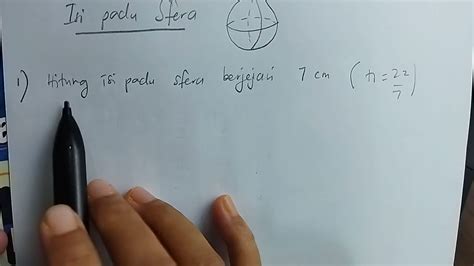 Isi padu Sfera
1) Hitung isi padu sfera berjejari 7 cm (π = 22/7)